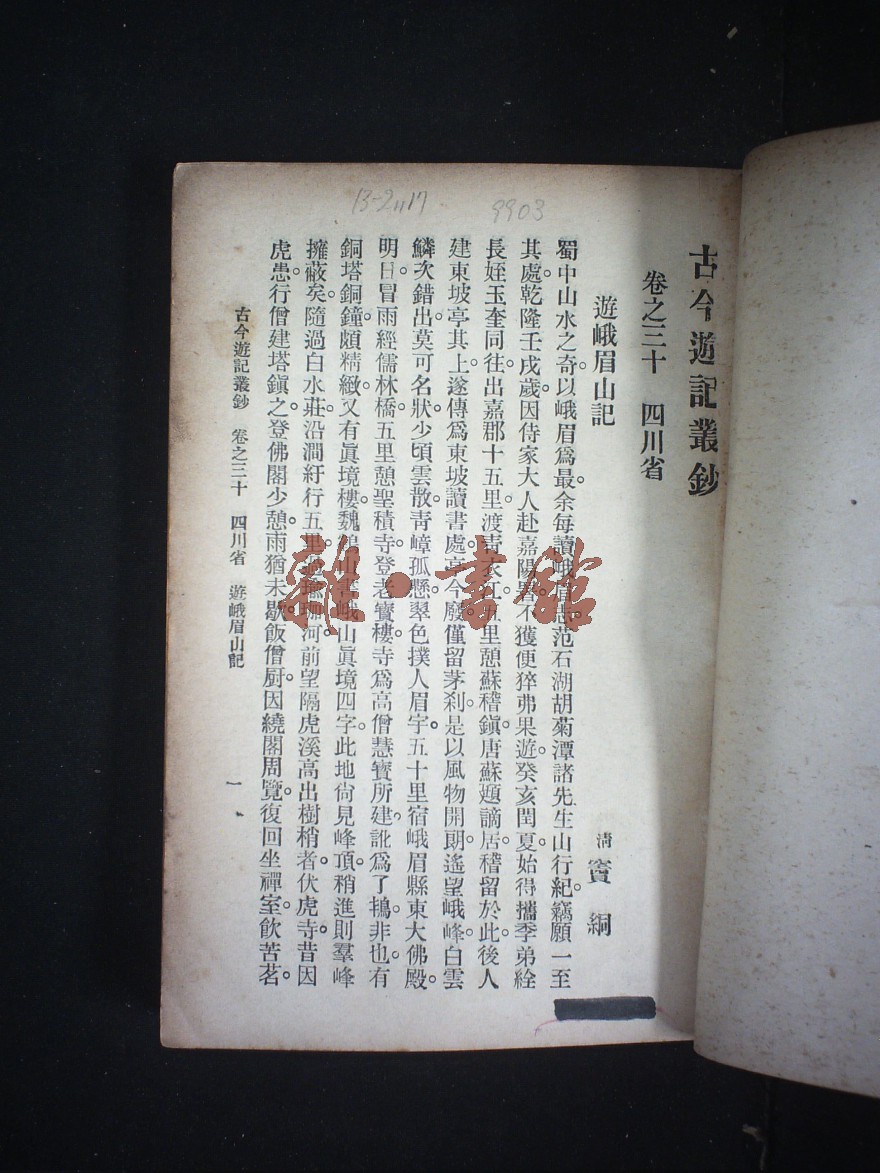 古今遊記叢鈔
卷之三十　四川省
遊峨眉山記
清　竇絅
蜀中山水之奇。以峨眉爲最。余每讀峨眉志。范石湖胡菊潭諸先生山行紀。竊願一至
其處。乾隆壬戌歲。因侍家大人赴嘉陽。不獲便。猝弗果遊。癸亥閏夏。始得攜季弟絟
長姪玉奎同往。出嘉郡十五里。渡青衣江。五里憩蘇稽鎭。唐蘇題謫居稽留於此。後人
建東坡亭其上。遂傳爲東坡讀書處。亭今廢。僅留茅刹。是以風物開朗。遙望峨峰。白雲
鱗次錯出。莫可名狀。少頃雲散。靑嶂孤懸。翠色撲人眉宇。五十里宿峨眉縣東大佛殿。
明日。冒雨經儒林橋。五里憩聖積寺。登老寶樓。寺爲高僧慧寶所建。訛爲了鴇。非也。有
銅塔銅鐘。頗精緻。又有眞境樓。魏鶴山書峨山眞境四字。此地尙見峰頂。稍進則羣峰
擁蔽矣。隨過白水莊。沿澗紆行五里。過瑜珈河。前望隔虎溪。高出樹梢者。伏虎寺。昔因
虎患。行僧建塔鎭之。登佛閣少憩。雨猶未歇。飯僧厨。因繞閣周覽。復回坐禪室。飮苦茗。
古今遊記叢鈔　卷之三十　四川省　遊峨眉山記　一
13-2417
9903
雜·書館